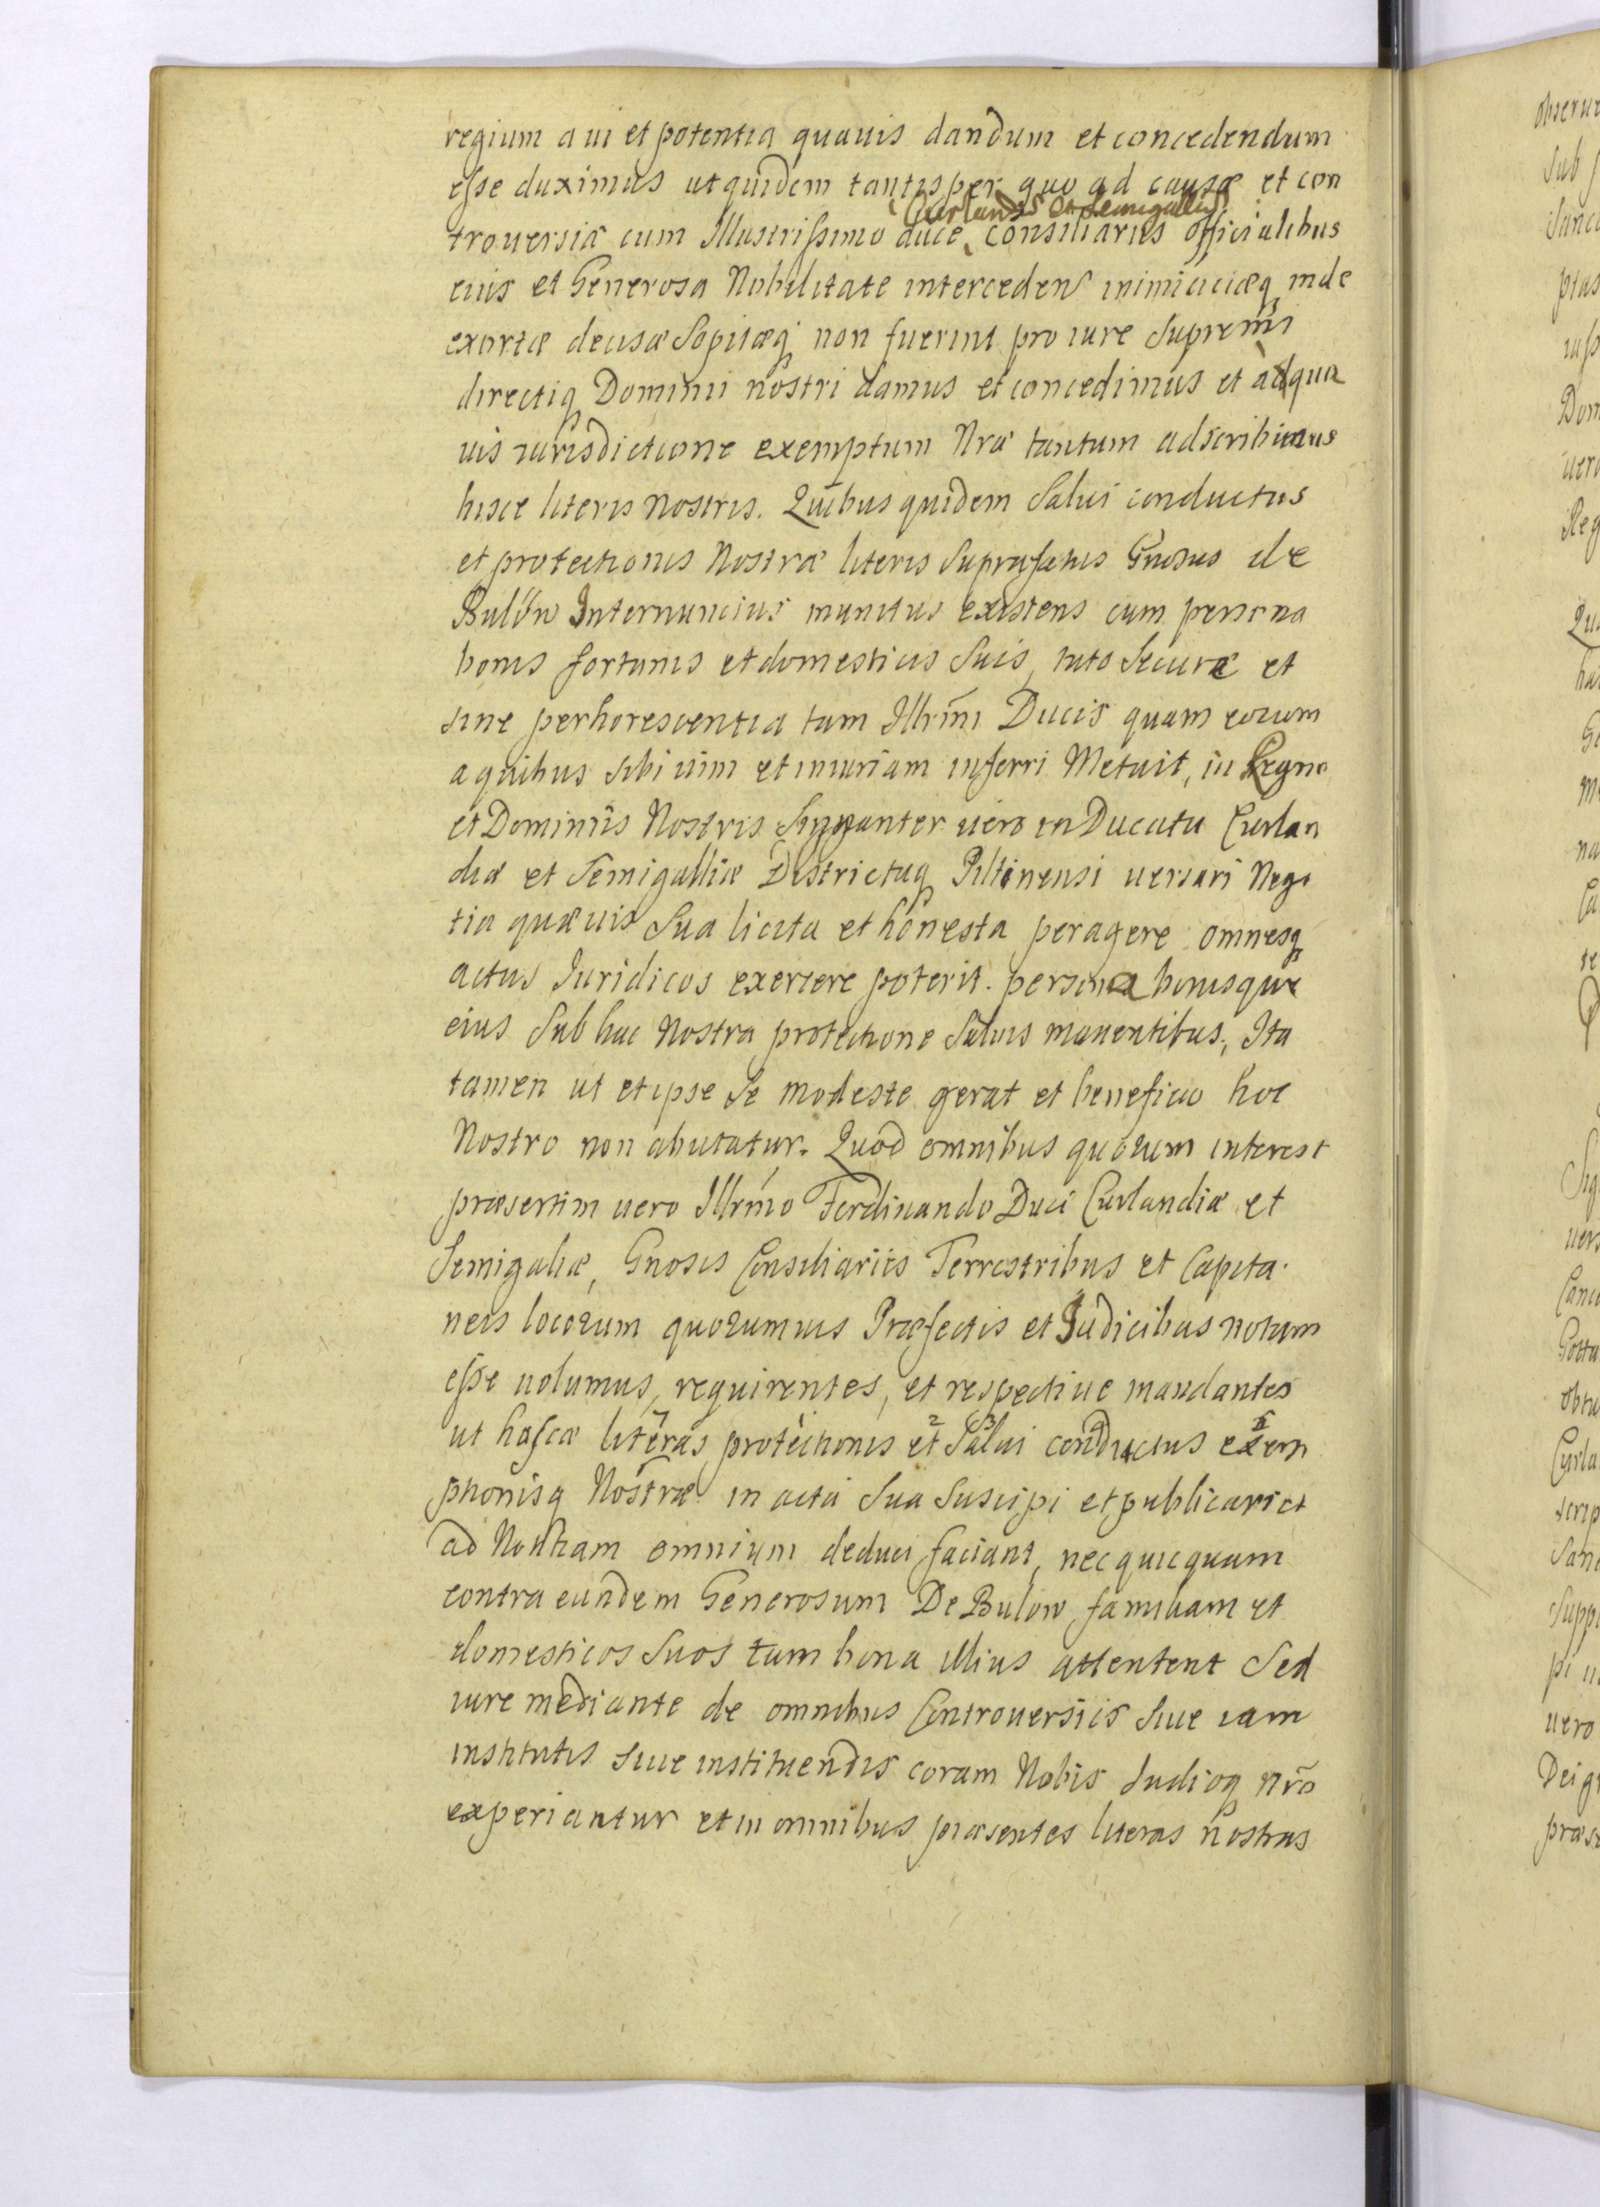 regium a ui et potentia quauis dandum et concedendum
esse duximus utquidem tantisper quo ad causæ et con
Curlandiæ et Semigalliæ
trouersiæ cum Illustrissimo duce, consiliariis officialibus
eius et Generosa Nobilitate intercedens inimiciciæq inde
exortæ decisæ Sopitæq non fuerint pro iure Supremi
directiq Dominii nostri damus et concedimus et àd qua
uis iurisdictione exemptum Nræ tantum adscribimus
hisce literis Nostris. Quibus quidem Salui conductus
et protectionis Nostræ literis Suprafatus Gnosus de
Bulöw Internuncius munitus existens cum persona
bonis fortunis et domesticis Suis, tuto Secure et
sine perhorescentia tam Illrmi Ducis quam eorum
a quibus sibi uim et iniuriam inferri Metuit, in Regno
et Dominiis Nostris Signanter uero in Ducatu Curlan
diæ et Semigalliæ Districtuq Piltinensi uersari Nego
tia quæuis Sua licita et honesta peragere omnesq
actus Iuridicos exercere poterit. persona bonisque
eius Sub hac Nostra protectione Saluis manentibus, Ita
tamen ut et ipse Se modeste gerat et beneficio hoc
Nostro non abutatur. Quod omnibus quorum interest
præsertim uero Illrmo Ferdinando Duci Curlandiæ et
Semigaliæ, Gnosis Consiliariis Terrestribus et Capita
neis locorum quorumuis Præfectis et Iudicibus notum
esse uolumus, requirentes, et respectiue mandantes
ut hasce literas protectionis et Salui conductus exem
ptionisq Nostræ in acta Sua Suscipi et publicari et
ad Notitiam omnium deduci faciant, nec quicquam
contra eundem Generosum De Bulow familiam et
domesticos Suos tum bona illius attentent Sed
iure mediante de omnibus Controuersiis Siue iam
institutis Siue instituendis coram Nobis Iudioq nro
experiantur et in omnibus præsentes literas Nostras